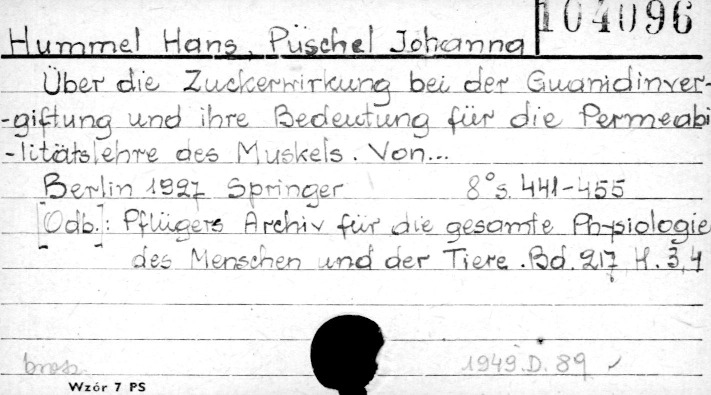 104096
Hummel Hans, Püschel Johanna
Über die Zuckerwirkung bei der Guanidinver-
-giftung und ihre Bedeutung für die Permeabi
-litätslehre des Muskels. Von...
Berlin 1927 Springer 8° s. 441-455
[Odb.]: Pflügers Archiv für die gesamte Physiologie
des Menschen und der Tiere. Bd. 217 H. 3,4
brosz. 1949.D.89
Wzór 7 PS